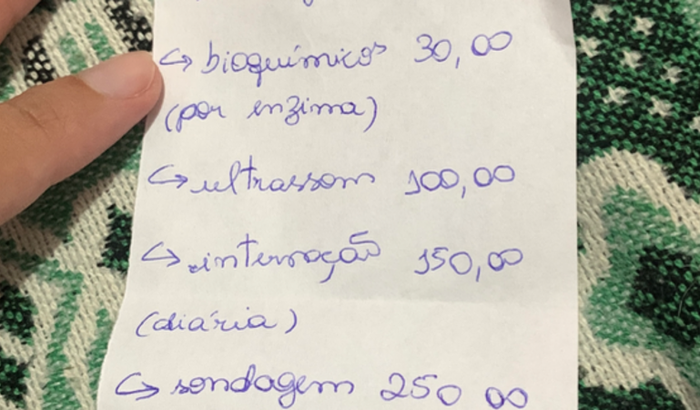 ↳ bioquímicos 30,00
(por enzima)
↳ ultrassom 100,00
↳ internação 150,00
(diária)
↳ sondagem 250 00